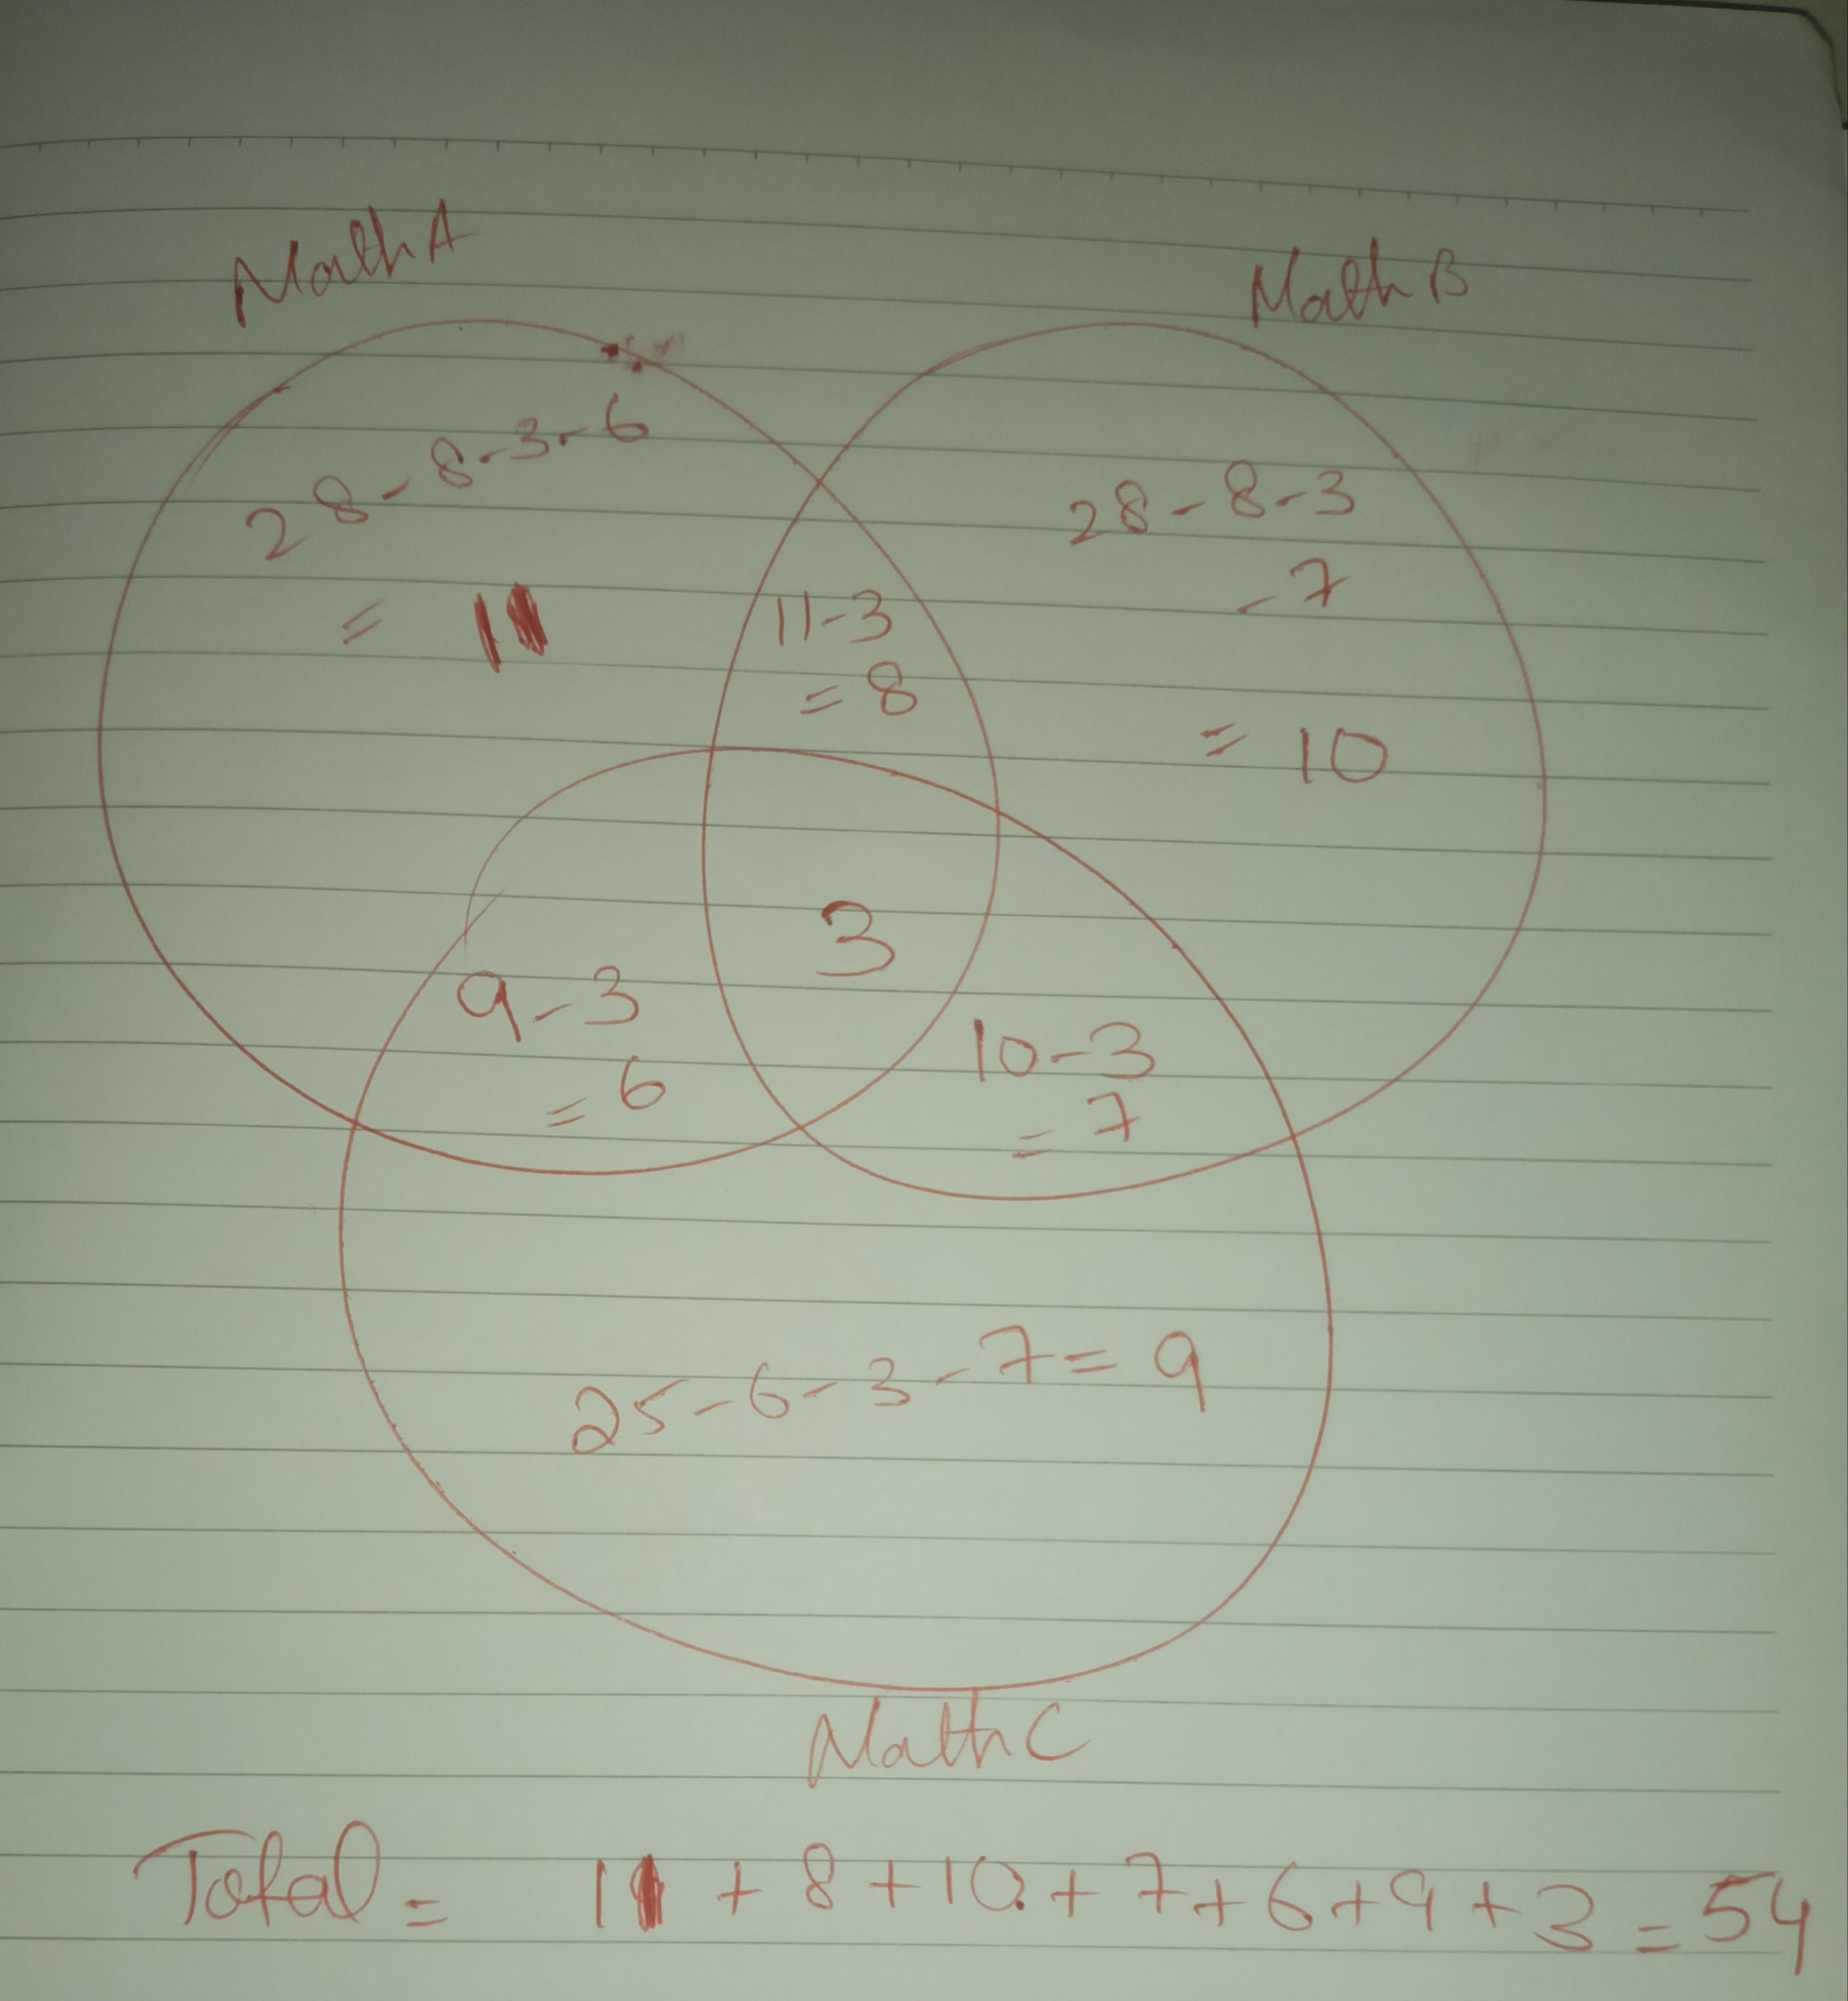 Math A
Math B
28-8-3-6
= 11
11-3
= 8
28-8-3
-7
= 10
3
9-3
= 6
10-3
= 7
25-6-3-7=9
Math C
Total = 11+8+10+7+6+9+3=54